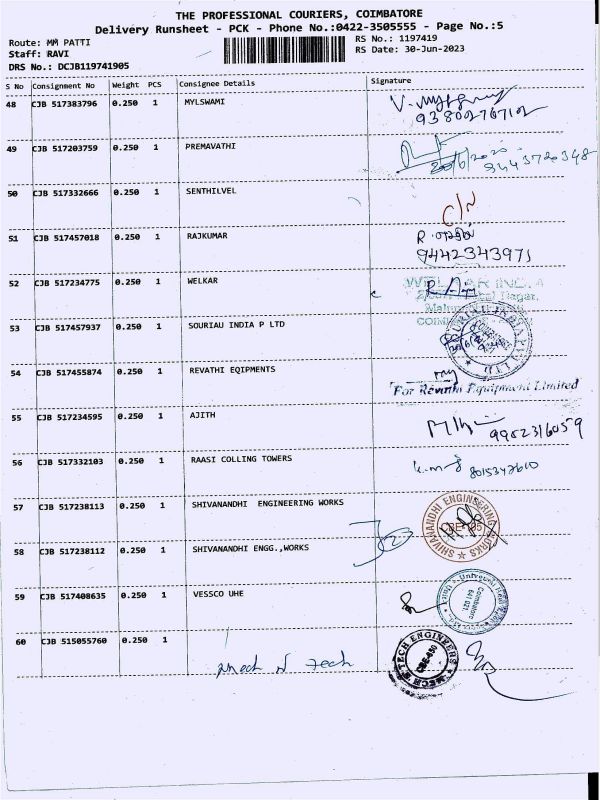 THE PROFESSIONAL COURIERS, COIMBATORE
Delivery Runsheet - PCK - Phone No.:0422-3505555 - Page No.:5
Route: MM PATTI RS No.: 1197419
Staff: RAVI RS Date: 30-Jun-2023
DRS No.: DCJB119741905
S No Consignment No Weight PCS Consignee Details Signature
48 CJB 517383796 0.250 1 MYLSWAMI
9380276712
49 CJB 517203759 0.250 1 PREMAVATHI
9443720348
50 CJB 517332666 0.250 1 SENTHILVEL
C/N
51 CJB 517457018 0.250 1 RAJKUMAR
9442343971
52 CJB 517234775 0.250 1 WELKAR
53 CJB 517457937 0.250 1 SOURIAU INDIA P LTD
54 CJB 517455874 0.250 1 REVATHI EQIPMENTS
For Revathi Equipment Limited
55 CJB 517234595 0.250 1 AJITH
9952316059
56 CJB 517332103 0.250 1 RAASI COLLING TOWERS
57 CJB 517238113 0.250 1 SHIVANANDHI ENGINEERING WORKS
SHIVANANDHI ENGINEERING WORKS
58 CJB 517238112 0.250 1 SHIVANANDHI ENGG.,WORKS
59 CJB 517408635 0.250 1 VESSCO UHE
Coimbatore
641 021
60 CJB 515055760 0.250 1
Mech N Tech
MECH N TECH ENGINEERS